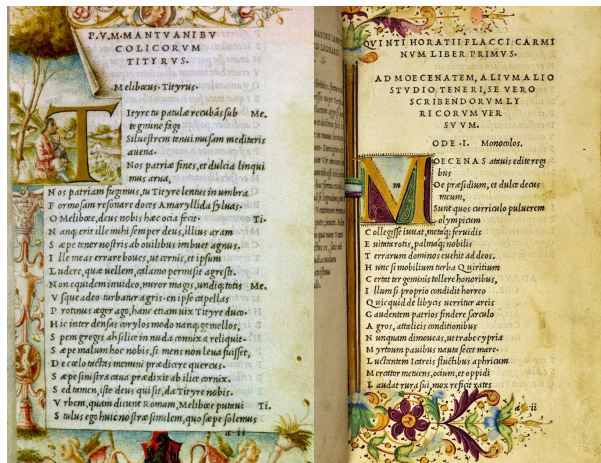 P. V. M. MANTVANI BV
COLICORVM
TITYRVS.
Melibœus. Tityrus.
Tityre tu patulæ recubãs sub Me.
tegmine fagi
Siluestrem tenui musam meditaris
auena.
Nos patriæ fines, et dulcia linqui
mus arua,
Nos patriam fugimus, tu Tityre lentus in umbra
Formosam resonare doces Amaryllida syluas.
O Melibœe, deus nobis hæc ocia fecit. Ti.
Nanq; erit ille mihi semper deus, illius aram
Sæpe tener nostris ab ouilibus imbuet agnus.
Ille meas errare boues, ut cernis, et ipsum
Ludere, quæ uellem, calamo permisit agresti.
Non equidem inuideo, miror magis, undiq; totis Me.
Vsque adeo turbatur agris. en ipse capellas
Protinus æger ago, hanc etiam uix Tityre duco.
Hic inter densas corylos modo nanq; gemellos,
Spem gregis ah silice in nuda connixa reliquit.
Sæpe malum hoc nobis, si mens non leua fuisset,
De cœlo tactas memini prædicere quercus.
Sæpe sinistra caua prædixit ab ilice cornix.
Sed tamen, iste deus qui sit, da Tityre nobis.
Vrbem, quam dicunt Romam, Melibœe putaui Ti.
Stultus ego huic nostræ similem, quo sæpe solemus
a ii
QVINTI HORATII FLACCI CARMI
NVM LIBER PRIMVS.
AD MOECENATEM, ALIVM ALIO
STVDIO TENERI, SE VERO
SCRIBENDORVM LY
RICORVM VER
SVVM.
ODE. I. Monocolos.
MOECENAS atauis edite regi
bus
Oe præsidium, et dulce decus
meum,
Sunt quos curriculo puluerem
olympicum
Collegisse iuuat, metaq; feruidis
Euitata rotis, palmaq; nobilis
Terrarum dominos euehit ad deos.
Hunc si mobilium turba Quiritium
Certat ter geminis tollere honoribus,
Illum si proprio condidit horreo
Quicquid de libycis uerritur areis
Gaudentem patrios findere sarculo
Agros, attalicis conditionibus
Nunquam dimoueas, ut trabe cypria
Myrtoum pauidus nauta secet mare.
Luctantem icareis fluctibus aphricum
Mercator metuens, ocium, et oppidi
Laudat rura sui, mox reficit rates
a ii